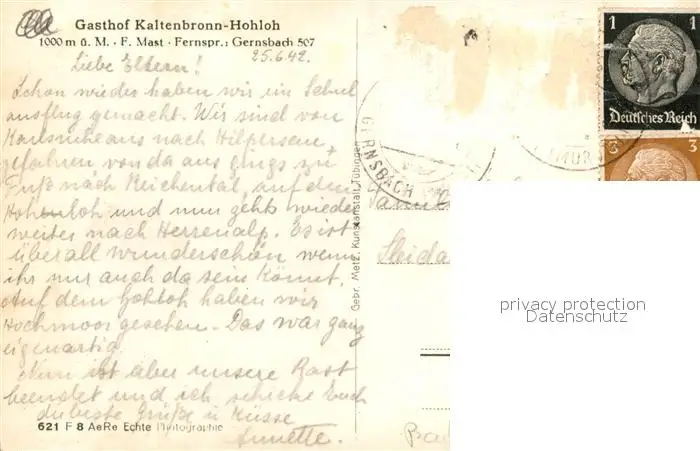 Gasthof Kaltenbronn-Hohloh
1000 m ü. M. · F. Mast · Fernspr.: Gernsbach 507
25.6.42.
Liebe Eltern!
Schon wieder haben wir ein Schul
ausflug gemacht. Wir sind von
Karlsruhe aus nach Hilpertsau
gefahren von da aus gings zu
Fuß nach Reichental, auf den
Hohenloh und nun gehts wieder
weiter nach Herrenalp. Es ist
überall wunderschön wenn
ihr nur auch da sein könnt.
Auf dem Hohloh haben wir
Hochmoor gesehen. Das war ganz
eigenartig.
Nun ist aber unsere Rast
beendet und ich schicke Euch
die beste Grüße u Küsse
Annette.
621 F 8 AeRe Echte Photographie
Gebr. Metz, Kunstanstalt, Tübingen
GERNSBACH
(MURG
1 1
Deutsches Reich
3 3
privacy protection
Datenschutz